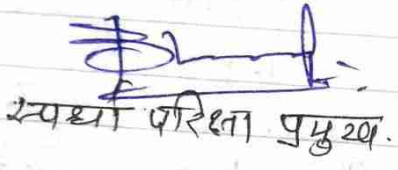 स्पर्धा परिक्षा प्रमुख.